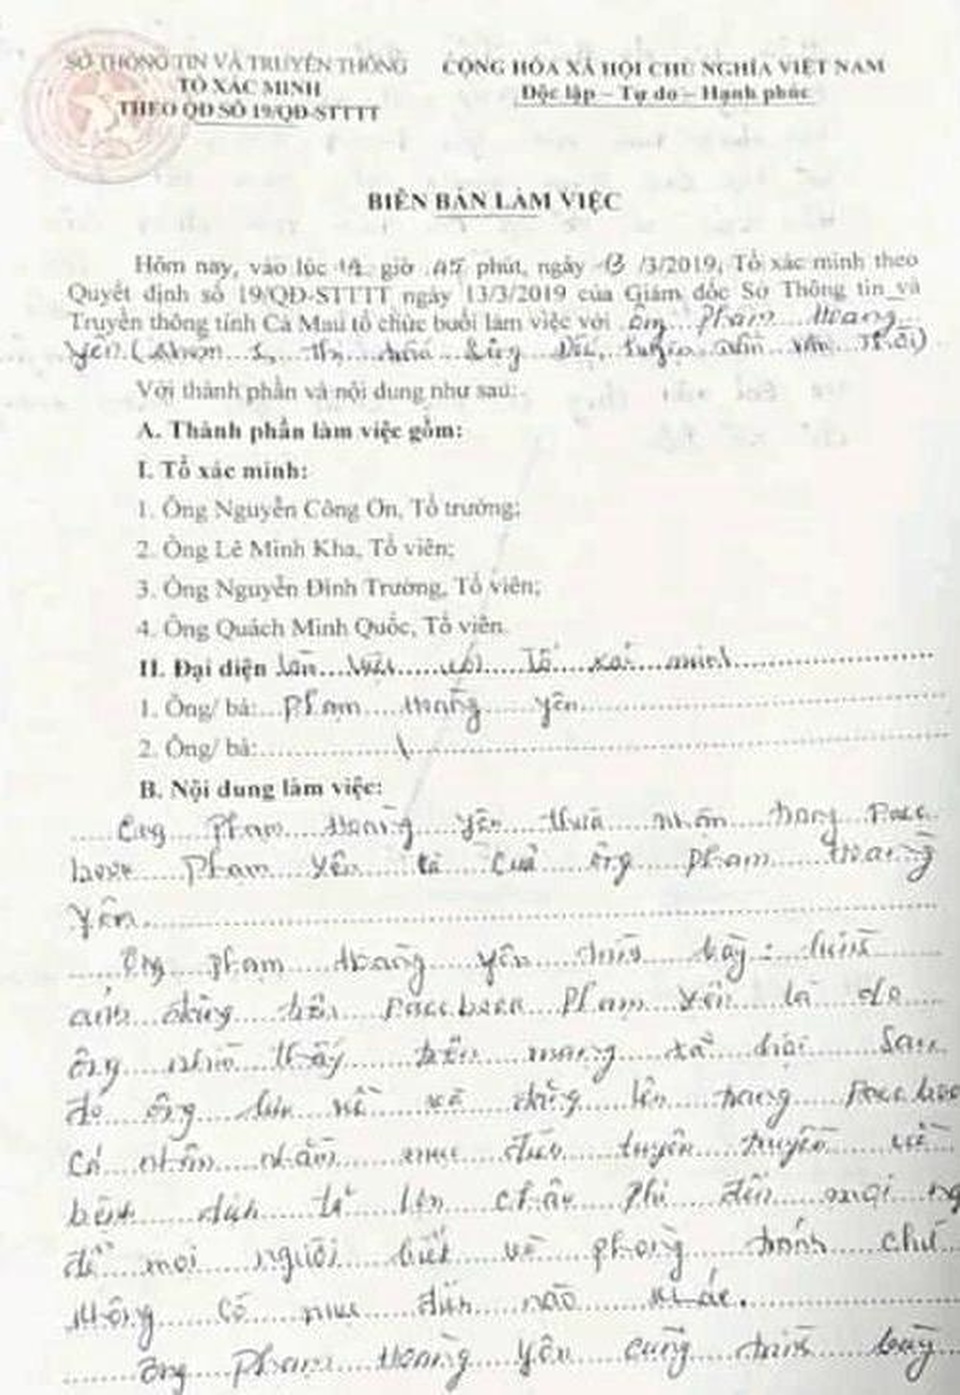 SỞ THÔNG TIN VÀ TRUYỀN THÔNG
TỔ XÁC MINH
THEO QĐ SỐ 19/QĐ-STTTT
CỘNG HÒA XÃ HỘI CHỦ NGHĨA VIỆT NAM
Độc lập – Tự do – Hạnh phúc
BIÊN BẢN LÀM VIỆC
Hôm nay, vào lúc giờ 45 phút, ngày 13 /3/2019, Tổ xác minh theo
Quyết định số 19/QĐ-STTTT ngày 13/3/2019 của Giám đốc Sở Thông tin và
Truyền thông tỉnh Cà Mau tổ chức buổi làm việc với ông Phạm Hoàng
Yên (khóm thị Đốc, Trần Văn Thời)
Với thành phần và nội dung như sau:
A. Thành phần làm việc gồm:
I. Tổ xác minh:
1. Ông Nguyễn Công Ơn, Tổ trưởng;
2. Ông Lê Minh Kha, Tổ viên;
3. Ông Nguyễn Đình Trường, Tổ viên;
4. Ông Quách Minh Quốc, Tổ viên.
II. Đại diện làm việc với Tổ xác minh
1. Ông/ bà: Phạm Hoàng Yên
2. Ông/ bà:
B. Nội dung làm việc:
Ông Phạm Hoàng Yên thừa nhận trang Face
book Phạm Yên là của ông Phạm Hoàng
Yên.
Ông Phạm Hoàng Yên trình bày: hình
ảnh đăng trên Facebook Phạm Yên là do
ông nhìn thấy trên mạng xã hội sau
đó ông lưu về và đăng lên trang Facebook
cá nhân nhằm mục đích tuyên truyền về
bệnh dịch tả lợn Châu Phi đến mọi ng
để mọi người biết và phòng tránh chứ
không có mục đích nào khác.
Ông Phạm Hoàng Yên cũng trình bày